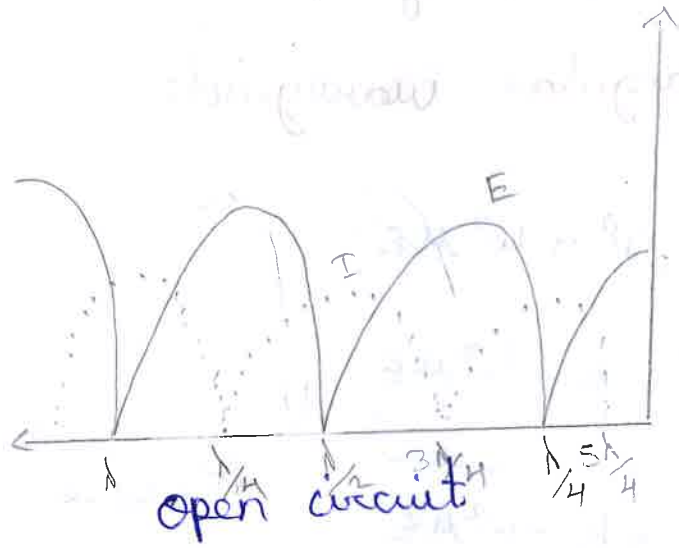 E
I
λ λ/4 λ/2 3λ/4 λ/4 5λ/4
open circuit